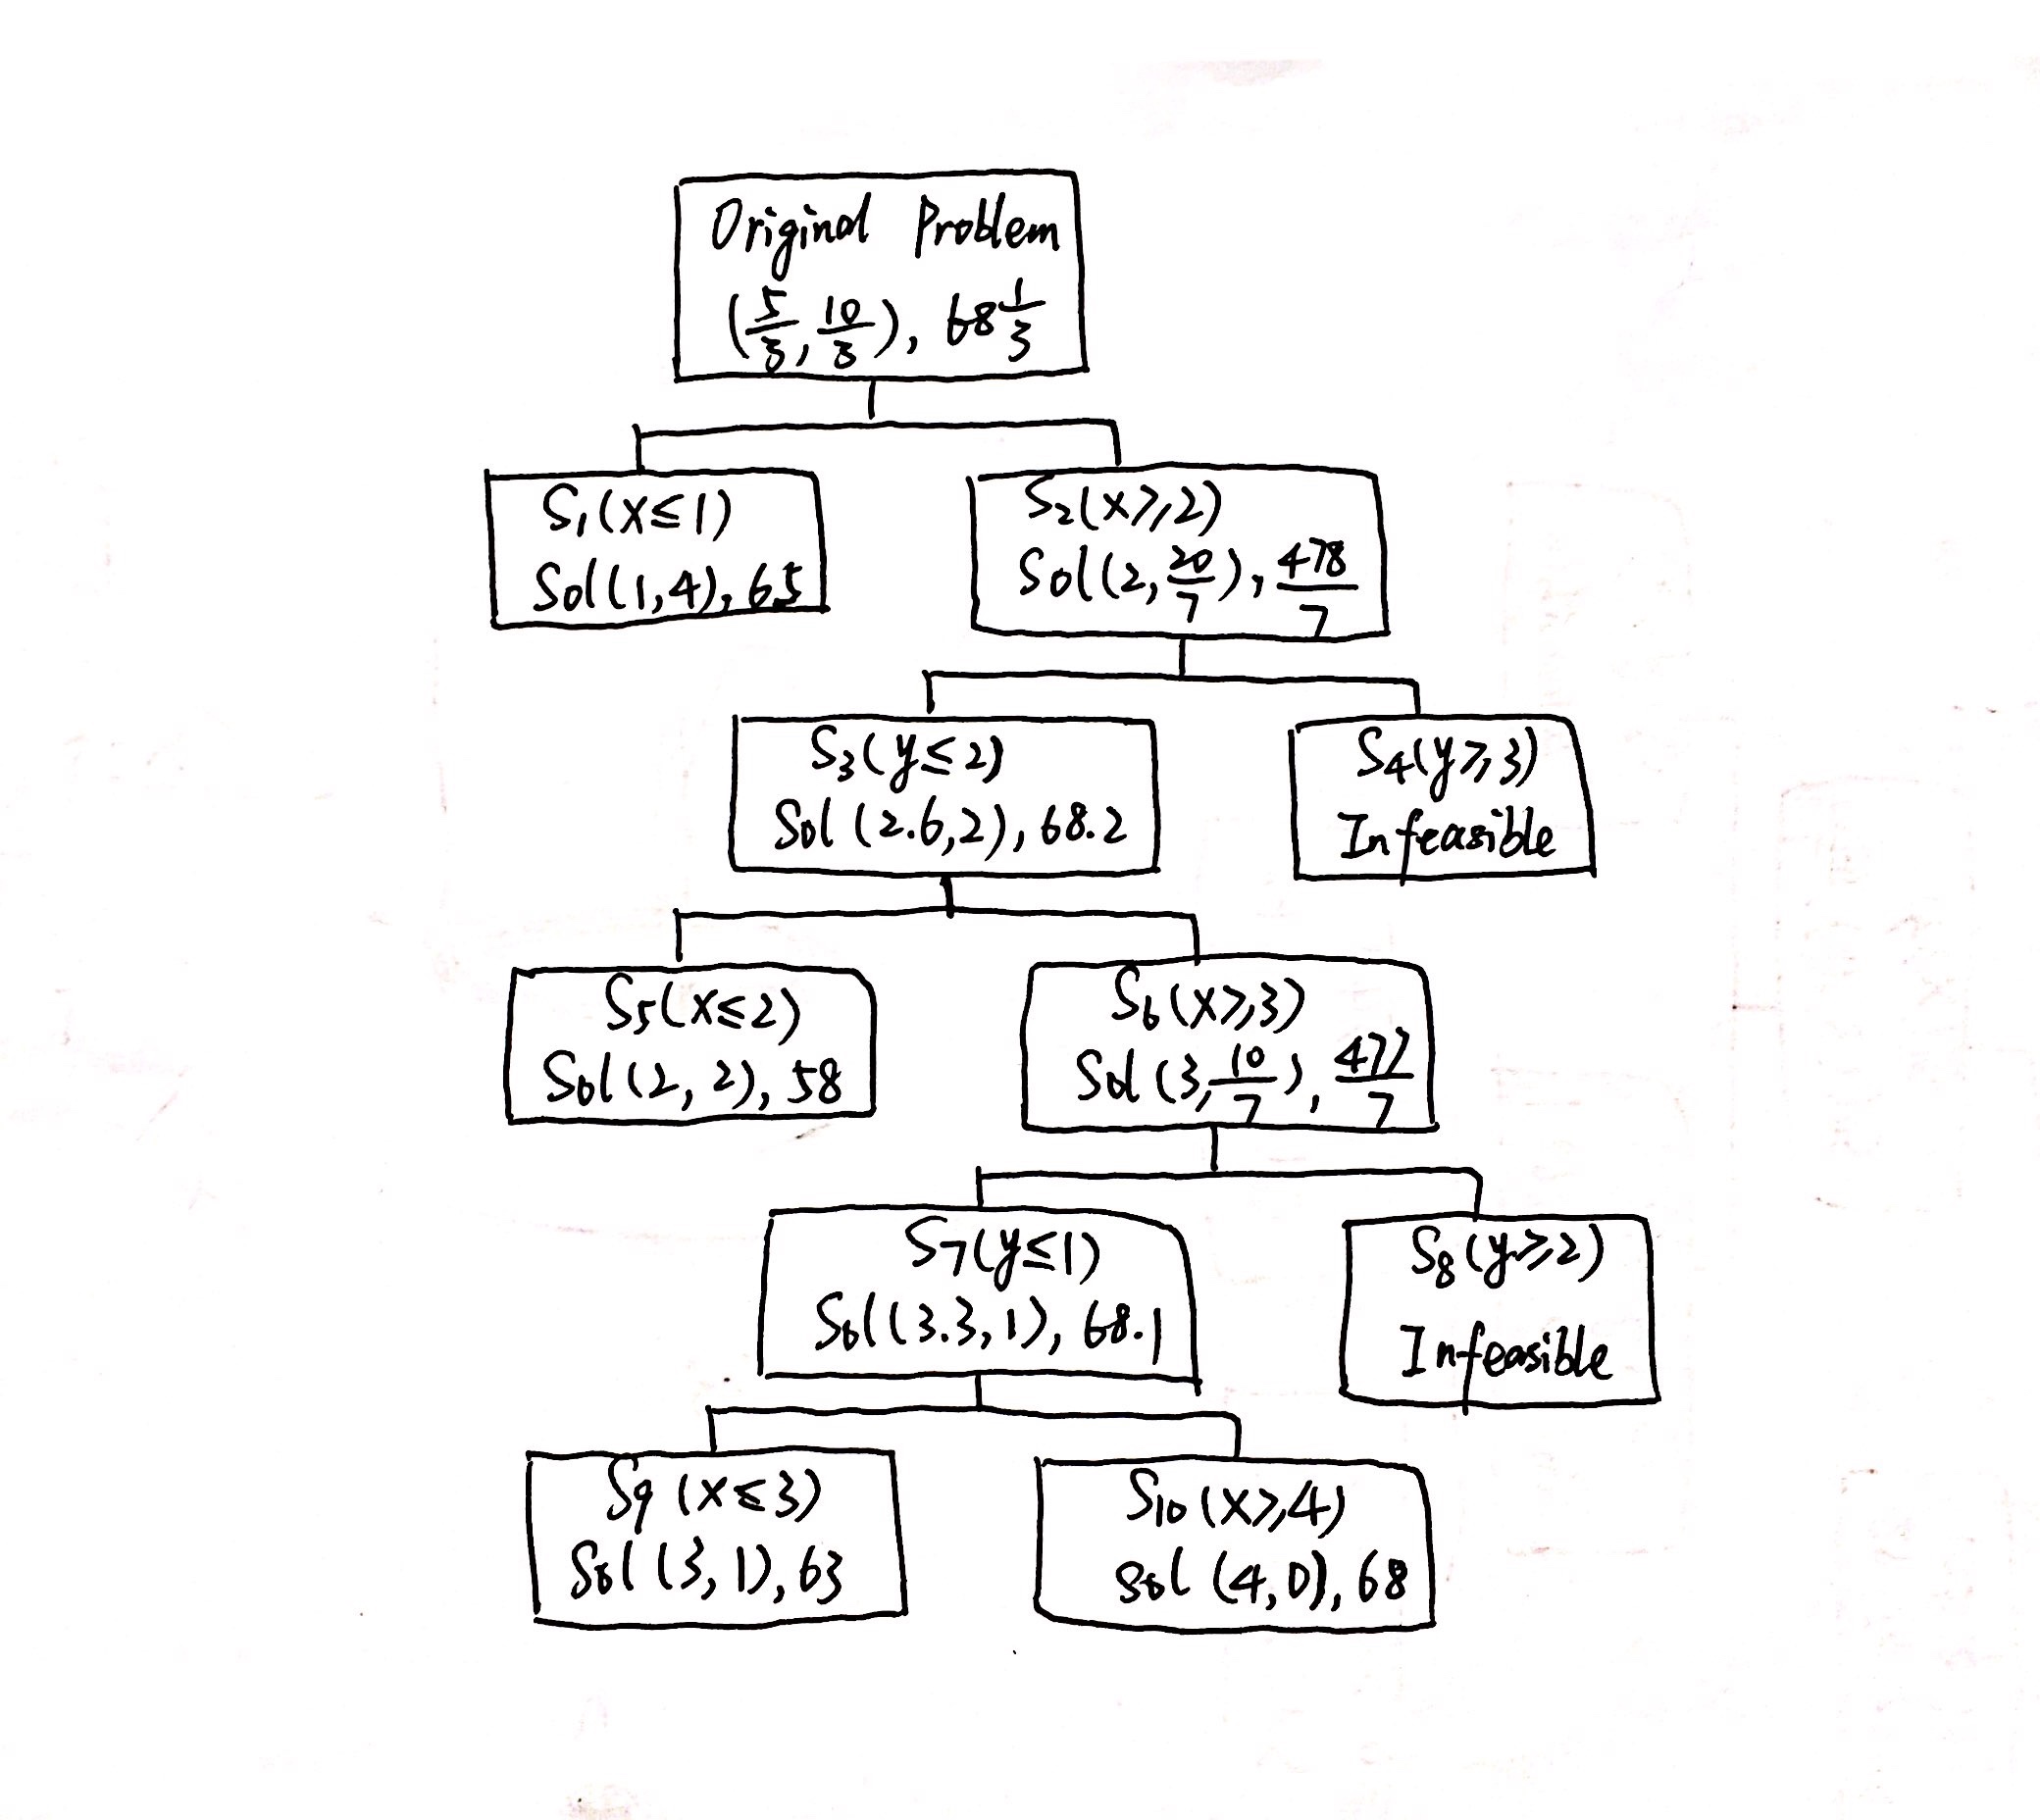 Original Problem
(5/3, 10/3), 68 1/3
S₁(x≤1)
Sol(1,4), 65
S₂(x≥2)
Sol(2, 20/7), 478/7
S₃(y≤2)
Sol(2.6,2), 68.2
S₄(y≥3)
Infeasible
S₅(x≤2)
Sol(2, 2), 58
S₆(x≥3)
Sol(3, 10/7), 477/7
S₇(y≤1)
Sol(3.3, 1), 68.1
S₈(y≥2)
Infeasible
S₉(x≤3)
Sol(3, 1), 63
S₁₀(x≥4)
Sol(4, 0), 68